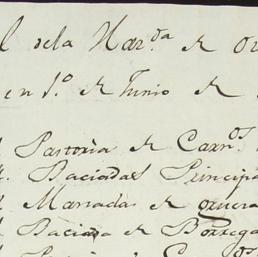 l dela Har.da de Ov
en 1.o de Junio de
Pastoria de Carn.os
Baciadas Principa
Mariadas de overa
Baciada de Borrega